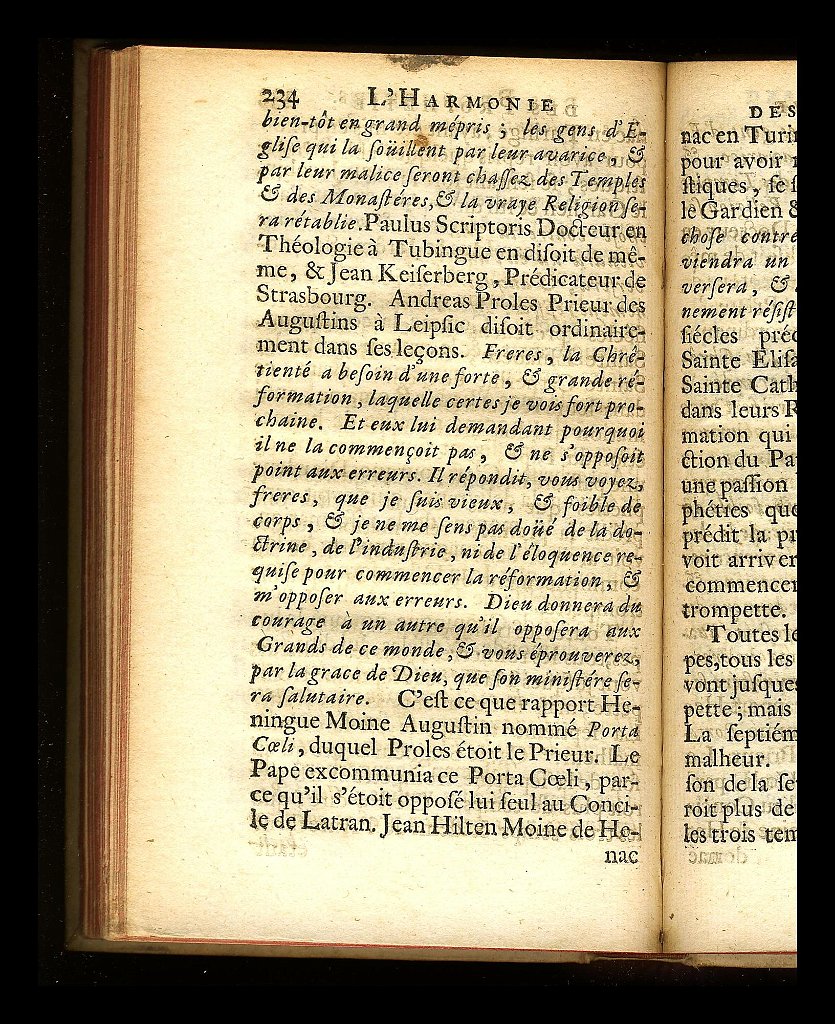 234 L'HARMONIE
bien-tôt en grand mépris ; les gens d'E-
gliſe qui la ſoüillent par leur avarice, &
par leur malice ſeront chaſſez des Temples
& des Monaſtéres, & la vraye Religion ſe-
ra rétablie. Paulus Scriptoris Docteur en
Théologie à Tubingue en diſoit de mê-
me, & Jean Keiſerberg, Prédicateur de
Strasbourg. Andreas Proles Prieur des
Auguſtins à Leipſic diſoit ordinaire-
ment dans ſes leçons. Freres, la Chrê-
tienté a beſoin d'une forte, & grande ré-
formation, laquelle certes je vois fort pro-
chaine. Et eux lui demandant pourquoi
il ne la commençoit pas, & ne s'oppoſoit
point aux erreurs. Il répondit, vous voyez,
freres, que je ſuis vieux, & foible de
corps, & je ne me ſens pas doüé de la do-
ctrine, de l'induſtrie, ni de l'éloquence re-
quiſe pour commencer la réformation, &
m'oppoſer aux erreurs. Dieu donnera du
courage à un autre qu'il oppoſera aux
Grands de ce monde, & vous éprouverez,
par la grace de Dieu, que ſon miniſtére ſe-
ra ſalutaire. C'eſt ce que rapport He-
ningue Moine Auguſtin nommé Porta
Cœli, duquel Proles étoit le Prieur. Le
Pape excommunia ce Porta Cœli, par-
ce qu'il s'étoit oppoſé lui ſeul au Conci-
le de Latran. Jean Hilten Moine de He-
nac
DES
nac en Turin
pour avoir
ſtiques, ſe
le Gardien &
choſe contre
viendra un
verſera, &
nement réſiſt
ſiécles préc
Sainte Eliſa
Sainte Cath
dans leurs R
mation qui
ction du Pa
une paſſion
phéties que
prédit la pr
voit arriver
commencer
trompette.
Toutes le
pes, tous les
vont juſques
pette ; mais
La ſeptiém
malheur.
ſon de la ſe
roit plus de
les trois tem